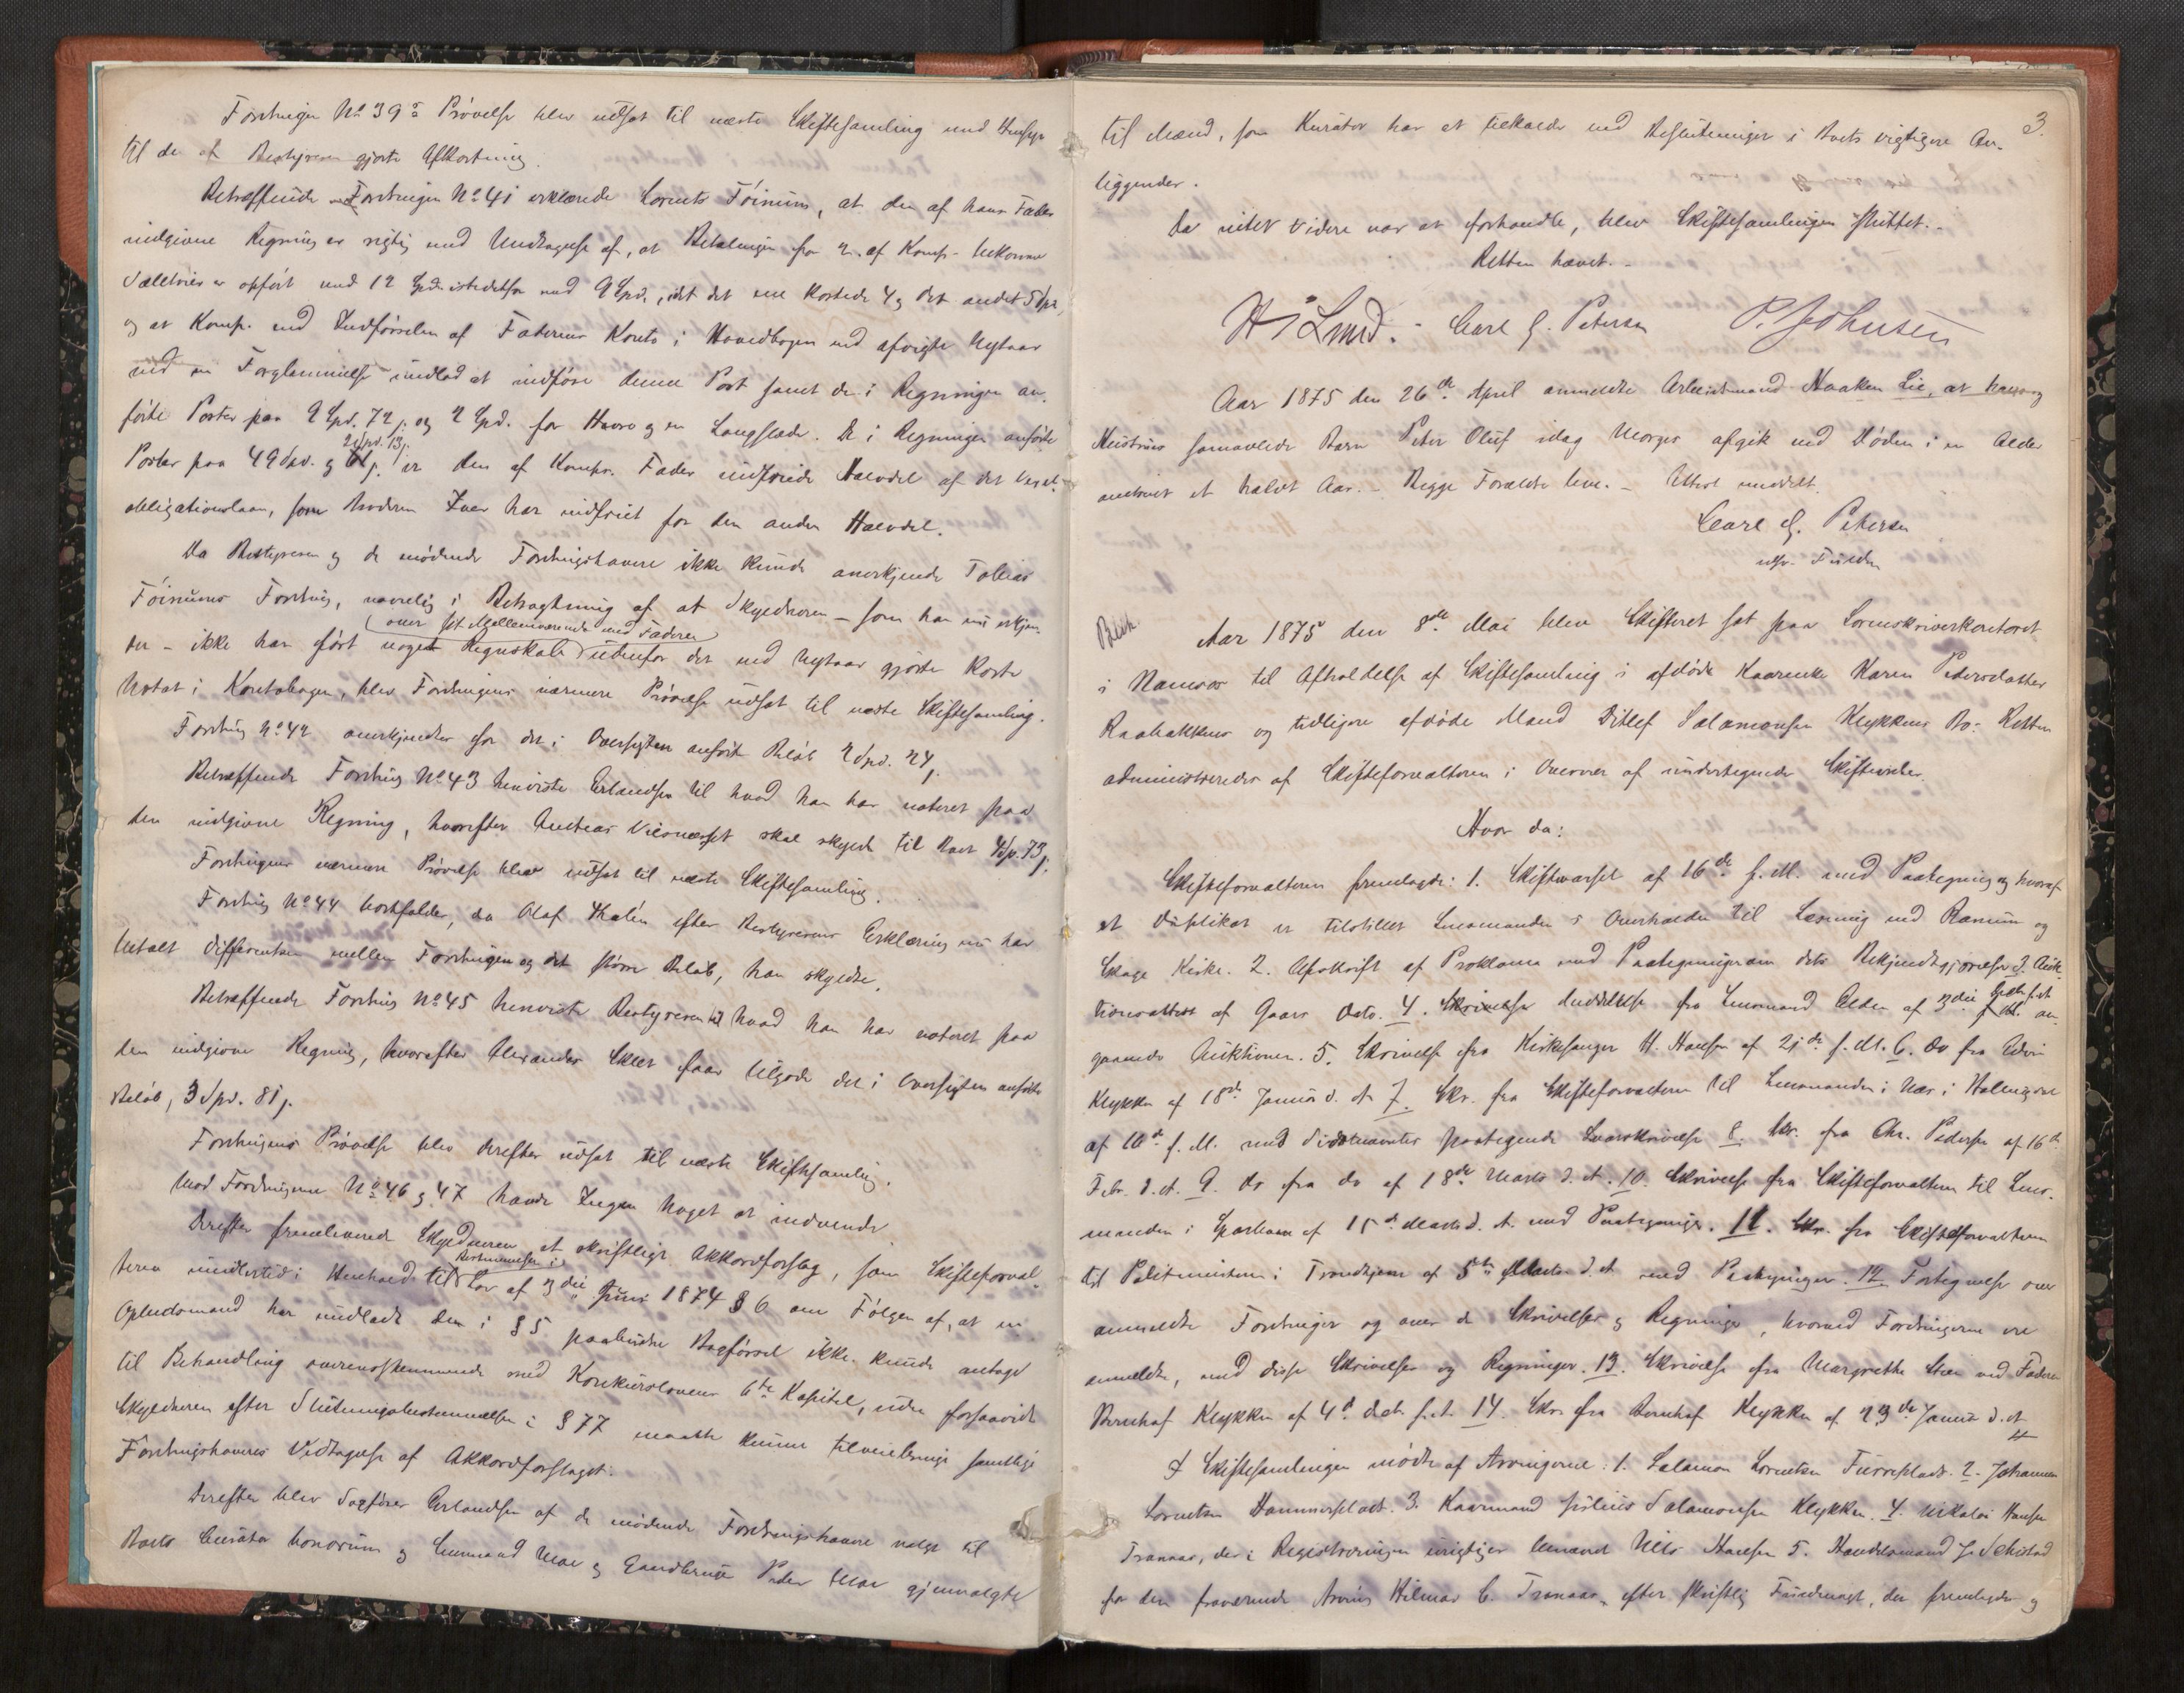 Fordringen No 39s Prøvelse blev udsat til næste Skiftesamling med Hensyn
til de af Bestyreren gjorte Afkortning.
Betræffende Fordringen No 41 erklærede Lornts Føinum, at den af hans Fader
indgivne Regning er rigtig med Undtagelse af, at Betalingen for 2 af Komp. bekomne
Sæletøier er opført med 12 Spd. istedetfor med 9 Spd., idet det ene kostede 4 og det andet 5 Spd,
og at Komp. ved Indførselen af Faderens Konto i Hovedbogen ved afvigte Nytaar
ved en Forglemmelse undlod at indføre denne Post samt de i Regningen an-
førte Poster paa 2 Spd. 72 j. og 2 Spd. for Havre og en Langslæde. De i Regningen anførte
Poster paa 49 Spd. og 21 Spd. 13 j. er den af Komps. Fader indfriede Halvdel af det
obligationslaan, som Broderen Iver har indfriet for den anden Halvdel.
Da Bestyreren og de mødende Fordringshavere ikke kunde anerkjende Tobias
Føinums Fordring, navnlig i Betragtning af at Skyldneren – som han nu erkjen-
der – ikke har ført noget Regnskab (over sit Mellemværende med Faderen) udenfor det ved Nytaar gjorte korte
Notat i Kontobogen, blev Fordringens nærmere Prøvelse udsat til næste Skiftesamling.
Fordring No 42 anerkjendtes for det i Oversigten anførte Beløb 2 Spd. 24 j.
Betræffende Fordring No 43 henviste Erlandsen til hvad han har noteret paa
den indgivne Regning, hvorefter Andreas skal skylde til Boet 4 Sp. 73 j.
Fordringens nærmere Prøvelse blev udsat til næste Skiftesamling.
Fordring No 44 bortfalder, da Olaf efter Bestyrerens Erklæring nu har
betalt Differentsen mellem Fordringen og det større Beløb, han skyldte.
Betræffende Fordring No 45 henviste Bestyreren til hvad han har noteret paa
den indgivne Regning, hvorefter Alexander faar tilgode det i Oversigten anførte
Beløb, 3 Spd. 81 j.
Fordringens Prøvelse blev derefter udsat til næste Skiftesamling.
Mod Fordringerne No 46 og 47 havde Ingen Noget at indvende.
Derefter fremleverede Skyldneren et skriftligt Akkordforslag, som Skifteforval-
teren imidlertid i Henhold til Bestemmelsen i Lov af 3die Juni 1874 § 6 om Følgen af, at en
Opbudsmand har undladt den i § 5 paabudne Bogførsel ikke kunde antage
til Behandling overensstemmende med Konkurslovens 6te Kapitel, uden forsaavidt
Skyldneren efter Slutningsbestemmelsen i § 77 maatte kunne tilveiebringe samtlige
Fordringshaveres Vedtagelse af Akkordforslaget.
Derefter blev Sagfører Erlandsen af de mødende Fordringshavere valgt til
Boets Curator bonorum og Lensmand Moe og Gaardbruger Peder Moe gjenvalgte
3.
til Mænd, som Kurator har at tilkalde ved Beslutninger i Boets vigtigere An-
liggender.
Da intet videre var at forhandle, blev Skiftesamlingen sluttet.
Retten hævet.
Carl G. Petersen P. Johnsen
Aar 1875 den 26de April anmeldte Arbeidsmand Haaken Lie, at hans og
Hustrus samavlede Barn Peter Oluf idag Morges afgik ved Døden i en Alder
omtrent et halvt Aar. – Begge Forældre leve. – Attest meddelt.
Carl G. Petersen
Aar 1875 den 8de Mai blev Skifteret sat paa Sorenskriverkontoret
i Namsos til Afholdelse af Skiftesamling i afdøde Kaarenke Karen Pedersdatter
Raabakkens og tidligere afdøde Mand Ditlef Salamonsen Klykkens Bo. Retten
administreredes af Skifteforvalteren i Overvær af undertegnede Skiftevidner.
Hvor da:
Skifteforvalteren fremlagde: 1. Skiftevarsel af 16de f. M. med Paategning og hvoraf
et Duplikat er tilstillet Lensmanden i Overhalden til Læsning ved Ranum og
Skage Kirke. 2. Afskrift af Proklama med Paategninger om dets Bekjendtgjørelse 3. Auk-
tionsattest af Gaars Dato. 4. Meddelelse fra Lensmand Elden af 3die an-
gaaende Auktionen. 5. Skrivelse fra Kirkesanger H. Hansen af 21de f. M. 6. Do fra
Klykken af 18de Januar d. A. 7. Skr. fra Skifteforvalteren til Lensmanden i Nær i
af 10de f. M. med Sidstnævntes paategnede Svarskrivelse 8. Skr. fra Chr. Pedersen af 16de
Febr. d. A. 9. do fra do af 18de Marts d. A. 10. Skrivelse fra Skifteforvalteren til Lens-
manden i Sparbuen af 15de Marts d. A. med Paategninger. 11. Skr. fra Skifteforvalteren
til Politmesteren i Trondhjem af 5te Marts d. A. med Paategninger. 12. Fortegnelse over
anmeldte Fordringer og over de Skrivelser og Regninger, hvormed Fordringerne ere
anmeldte, med disse Skrivelser og Regninger. 13. Skrivelse fra Margrethe ved Faderen
Bernhof Klykken af 4de f. A. 14. Skr. fra Bernhof Klykken af 23de Januar d. A.
I Skiftesamlingen mødte af Arvingerne: 1. Salamon Lorntsen Furreplads. 2. Johannes
Lorntsen Hammerplads. 3. Kaarmand Julius Salamonsen Klykken. 4. Nikolai Hansen
Tranaas, der i Registreringen urigtigen benævnt Nils Hansen 5. Handelsmand J. Sekstad
for den fraværende Arving Hilmar C. Tranaas, efter skriftlig Fuldmagt, der fremlagdes og